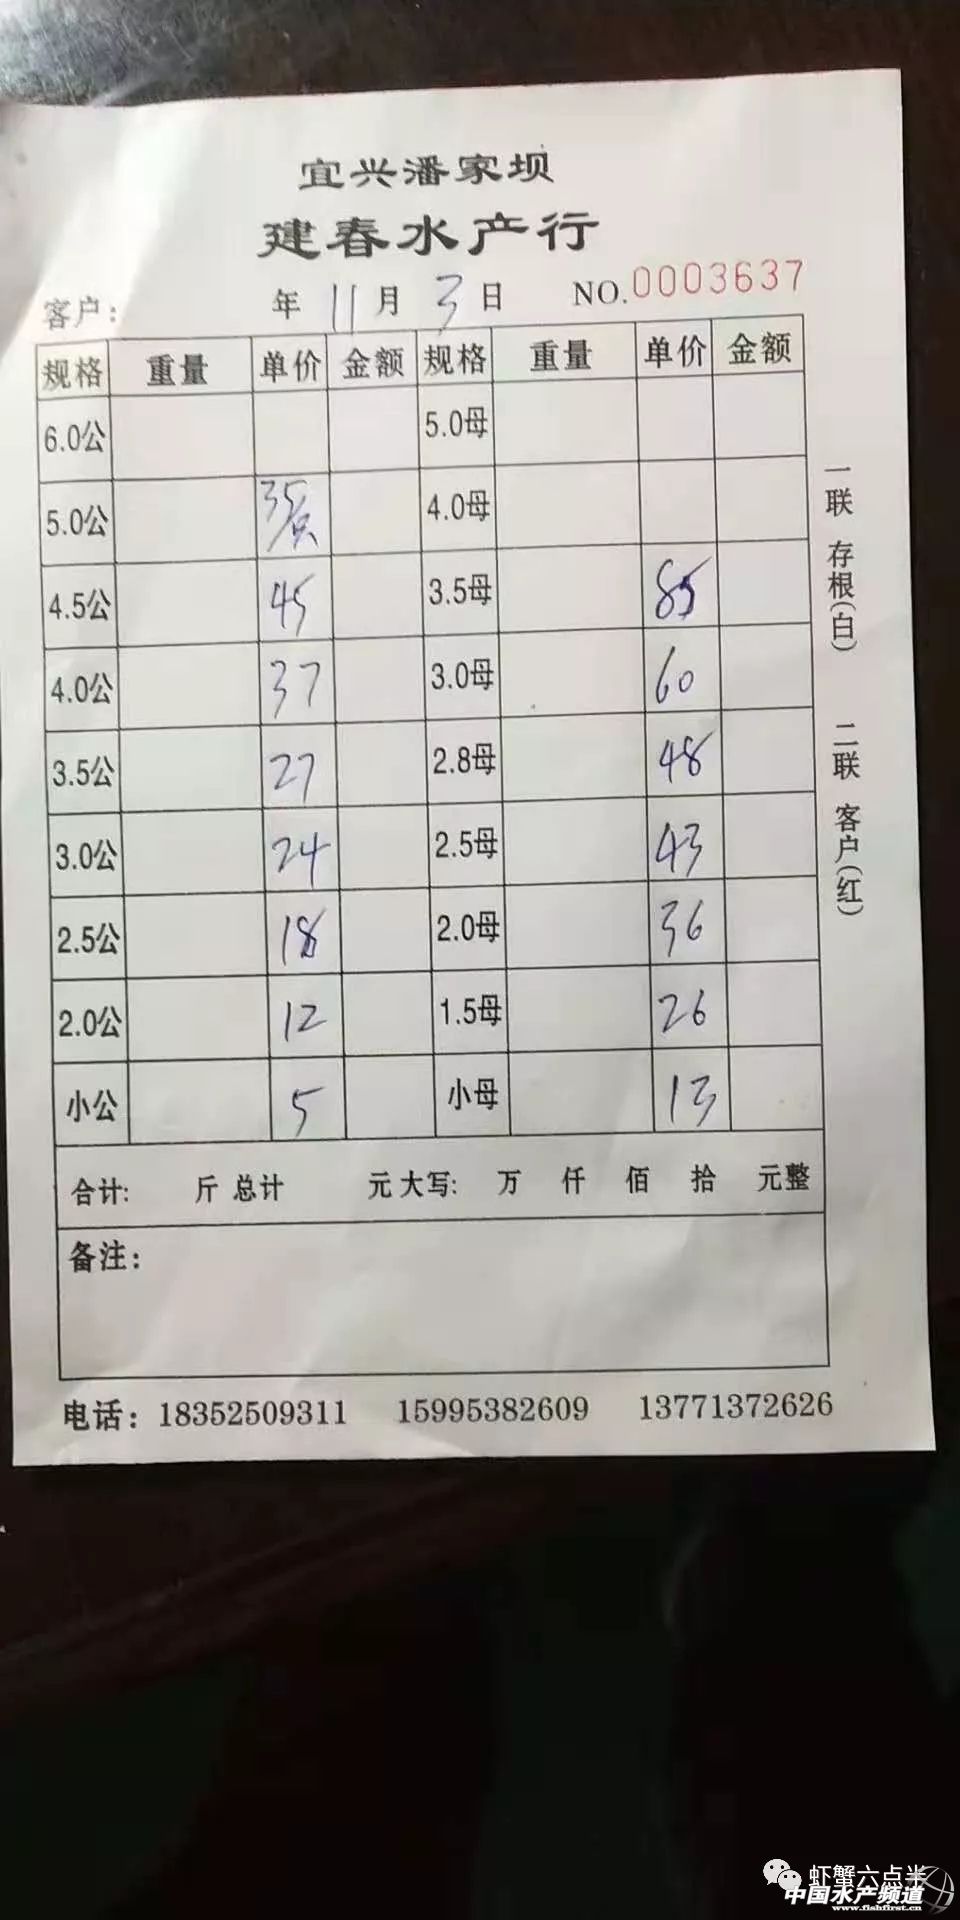 宜兴潘家坝
建春水产行
客户: 年 11 月 3 日 NO.0003637
规格 重量 单价 金额 规格 重量 单价 金额
6.0公 5.0母
5.0公 35/只 4.0母
4.5公 45 3.5母 85
4.0公 37 3.0母 60
3.5公 27 2.8母 48
3.0公 24 2.5母 43
2.5公 18 2.0母 36
2.0公 12 1.5母 26
小公 5 小母 13
合计: 斤 总计 元 大写: 万 仟 佰 拾 元整
备注:
电话: 18352509311 15995382609 13771372626
一联 存根(白) 二联 客户(红)
虾蟹六点半
中国水产频道
www.fishfirst.cn